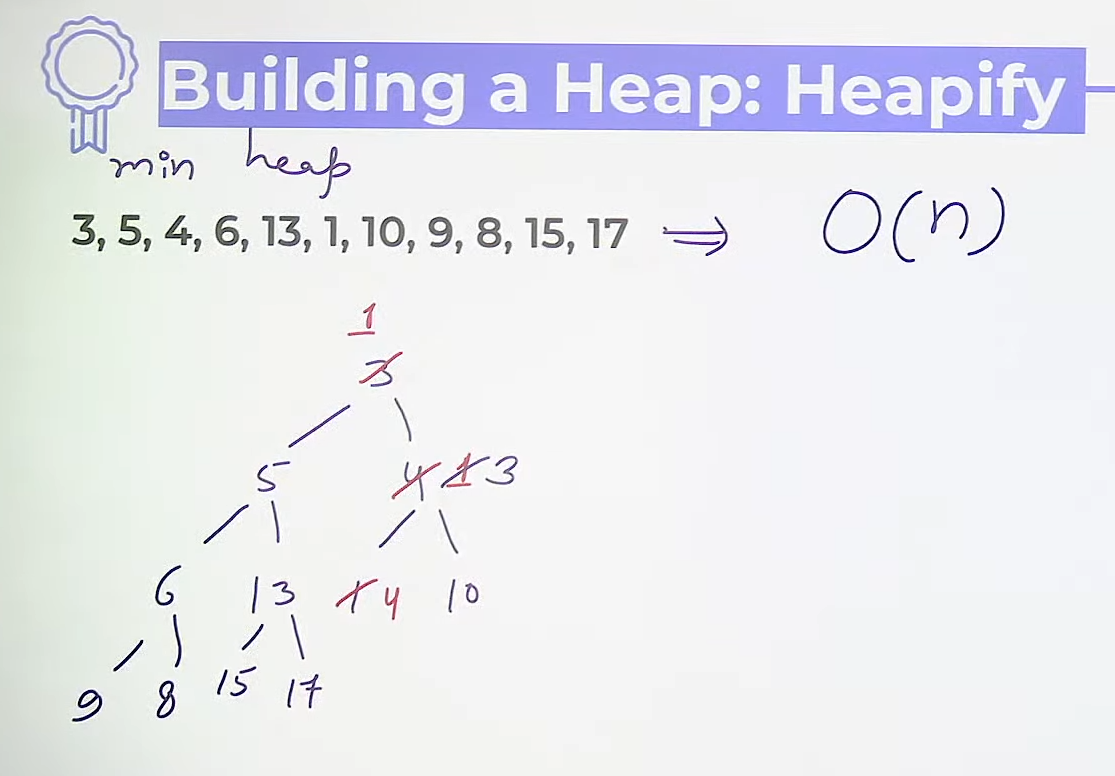 Building a Heap: Heapify
min heap
3, 5, 4, 6, 13, 1, 10, 9, 8, 15, 17 ⇒ O(n)
1
3
5 4 1 3
6 13 1 4 10
9 8 15 17